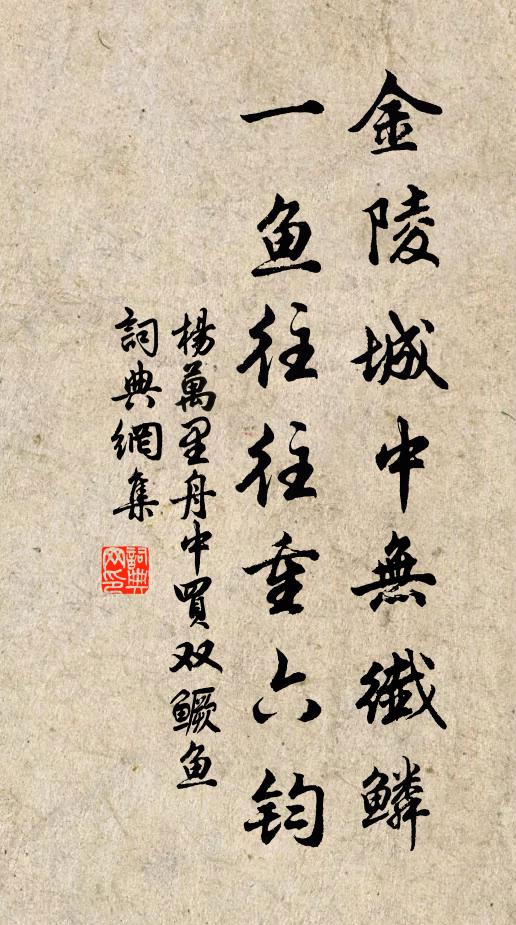 金陵城中無纖鱗
一鱼往往重六鈞
楊萬里舟中買双鳜鱼
詞典網集
詞典網印